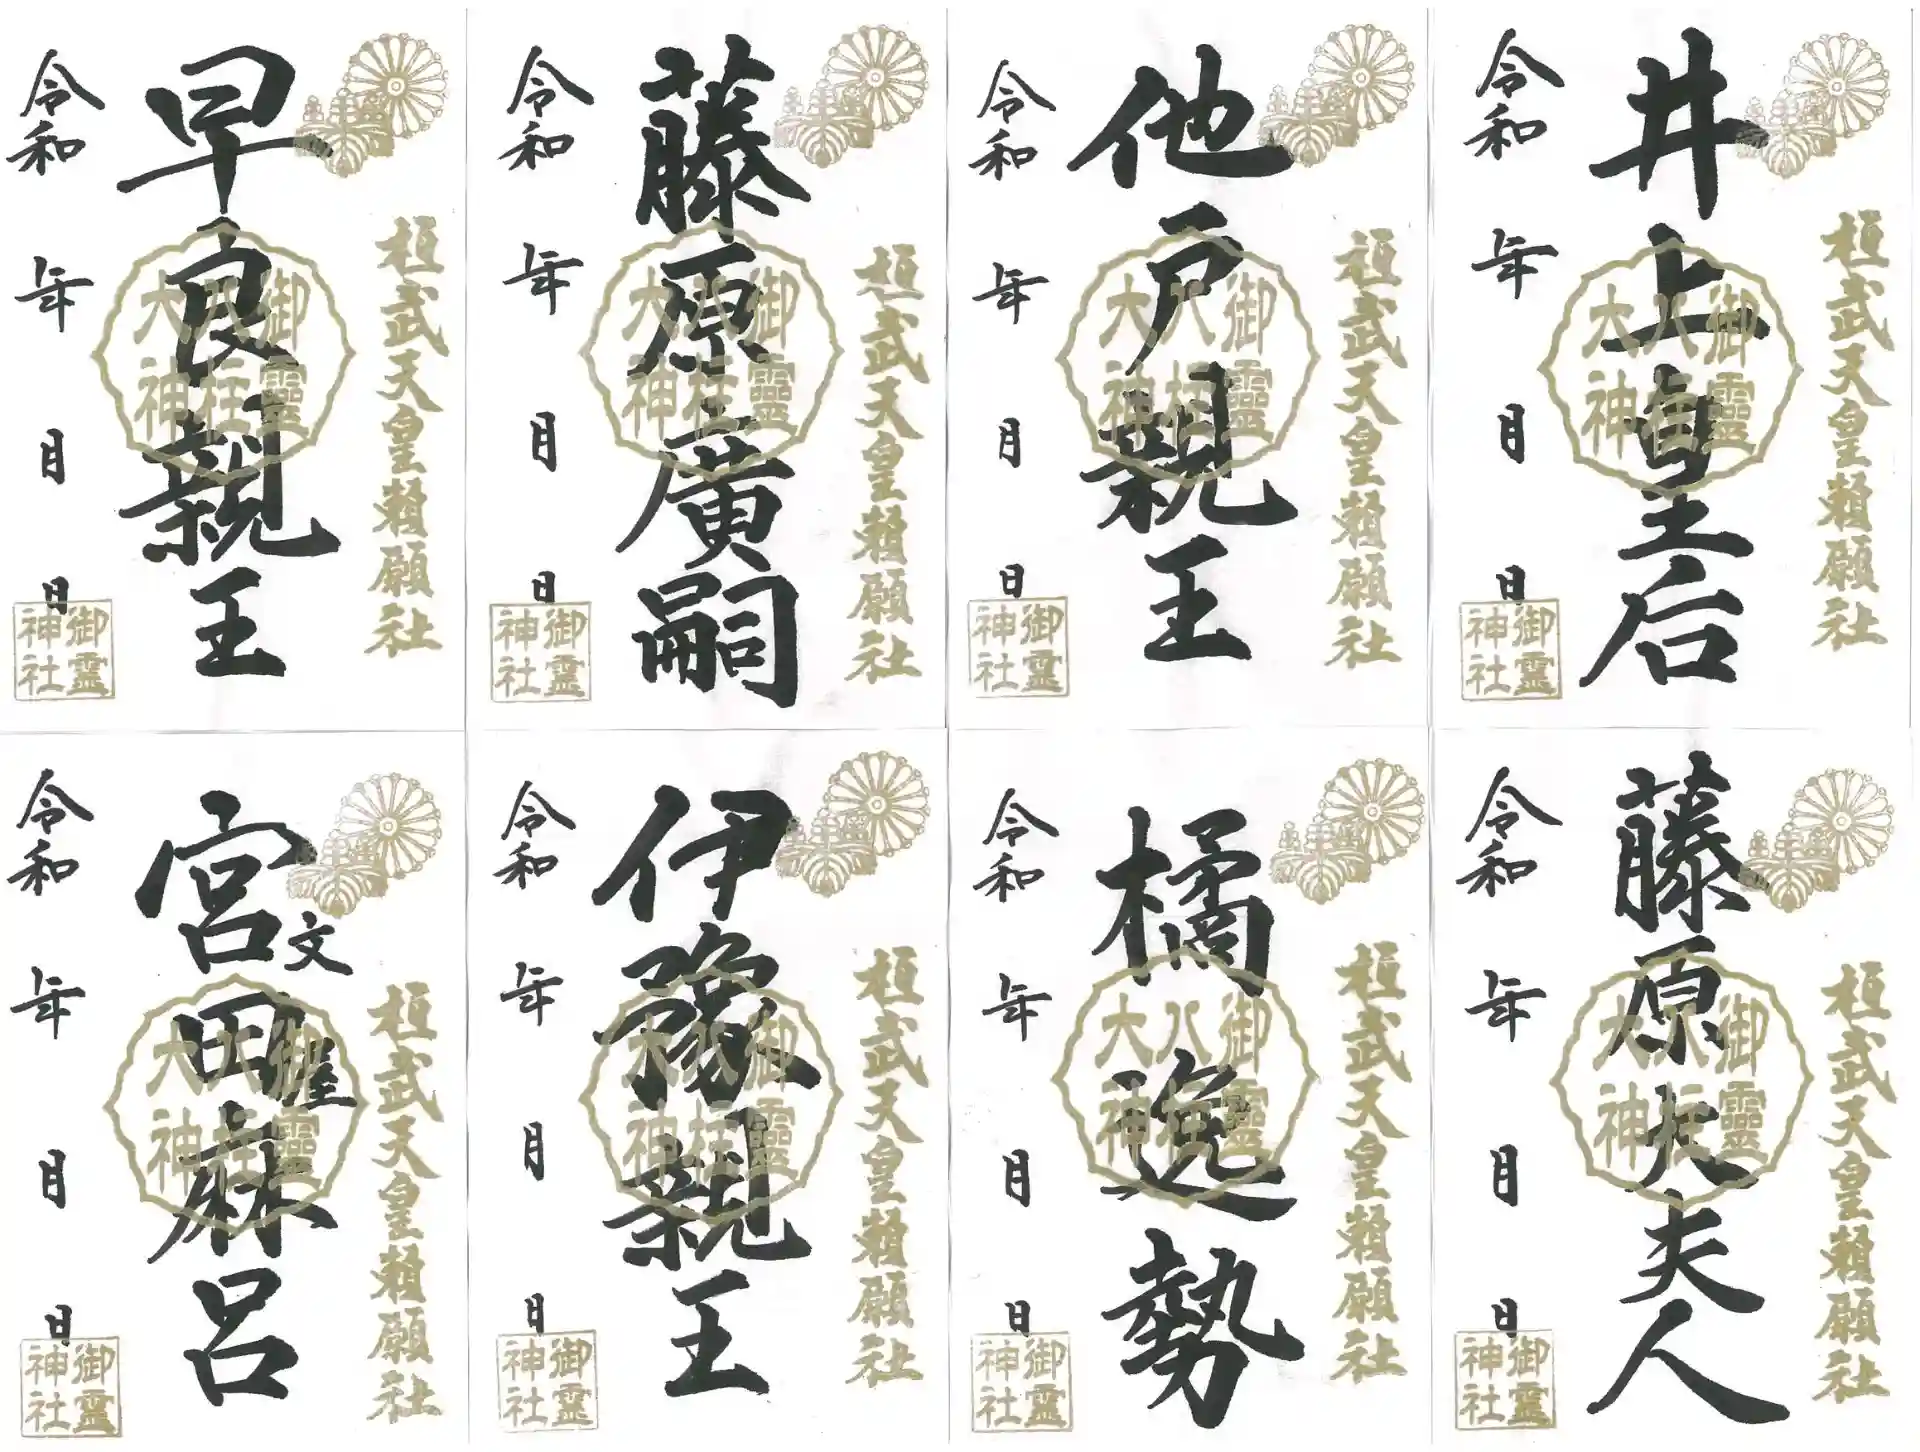 桓武天皇勅願社
井上皇后
御靈
八柱
大神
令和 年 月 日
御霊
神社
桓武天皇勅願社
他戸親王
御靈
八柱
大神
令和 年 月 日
御霊
神社
桓武天皇勅願社
藤原廣嗣
御靈
八柱
大神
令和 年 月 日
御霊
神社
桓武天皇勅願社
早良親王
御靈
八柱
大神
令和 年 月 日
御霊
神社
桓武天皇勅願社
藤原大夫人
御靈
八柱
大神
令和 年 月 日
御霊
神社
桓武天皇勅願社
橘逸勢
御靈
八柱
大神
令和 年 月 日
御霊
神社
桓武天皇勅願社
伊豫親王
御靈
八柱
大神
令和 年 月 日
御霊
神社
桓武天皇勅願社
文屋
宮田麻呂
御靈
八柱
大神
令和 年 月 日
御霊
神社